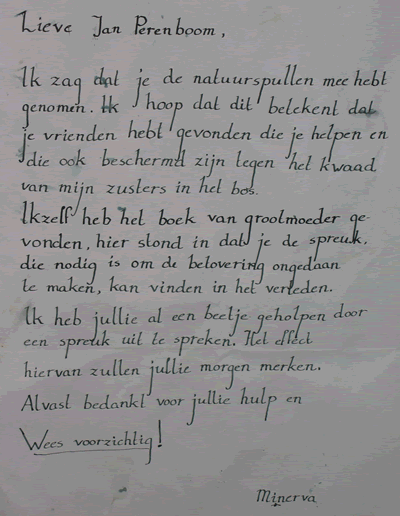 Lieve Jan Perenboom,
Ik zag dat je de natuurspullen mee hebt
genomen. Ik hoop dat dit betekent dat
je vrienden hebt gevonden die je helpen en
die ook beschermd zijn tegen het kwaad
van mijn zusters in het bos.
Ikzelf heb het boek van grootmoeder ge-
vonden, hier stond in dat je de spreuk,
die nodig is om de betovering ongedaan
te maken, kan vinden in het verleden.
Ik heb jullie al een beetje geholpen door
een spreuk uit te spreken. Het effect
hiervan zullen jullie morgen merken.
Alvast bedankt voor jullie hulp en
Wees voorzichtig!
Minerva